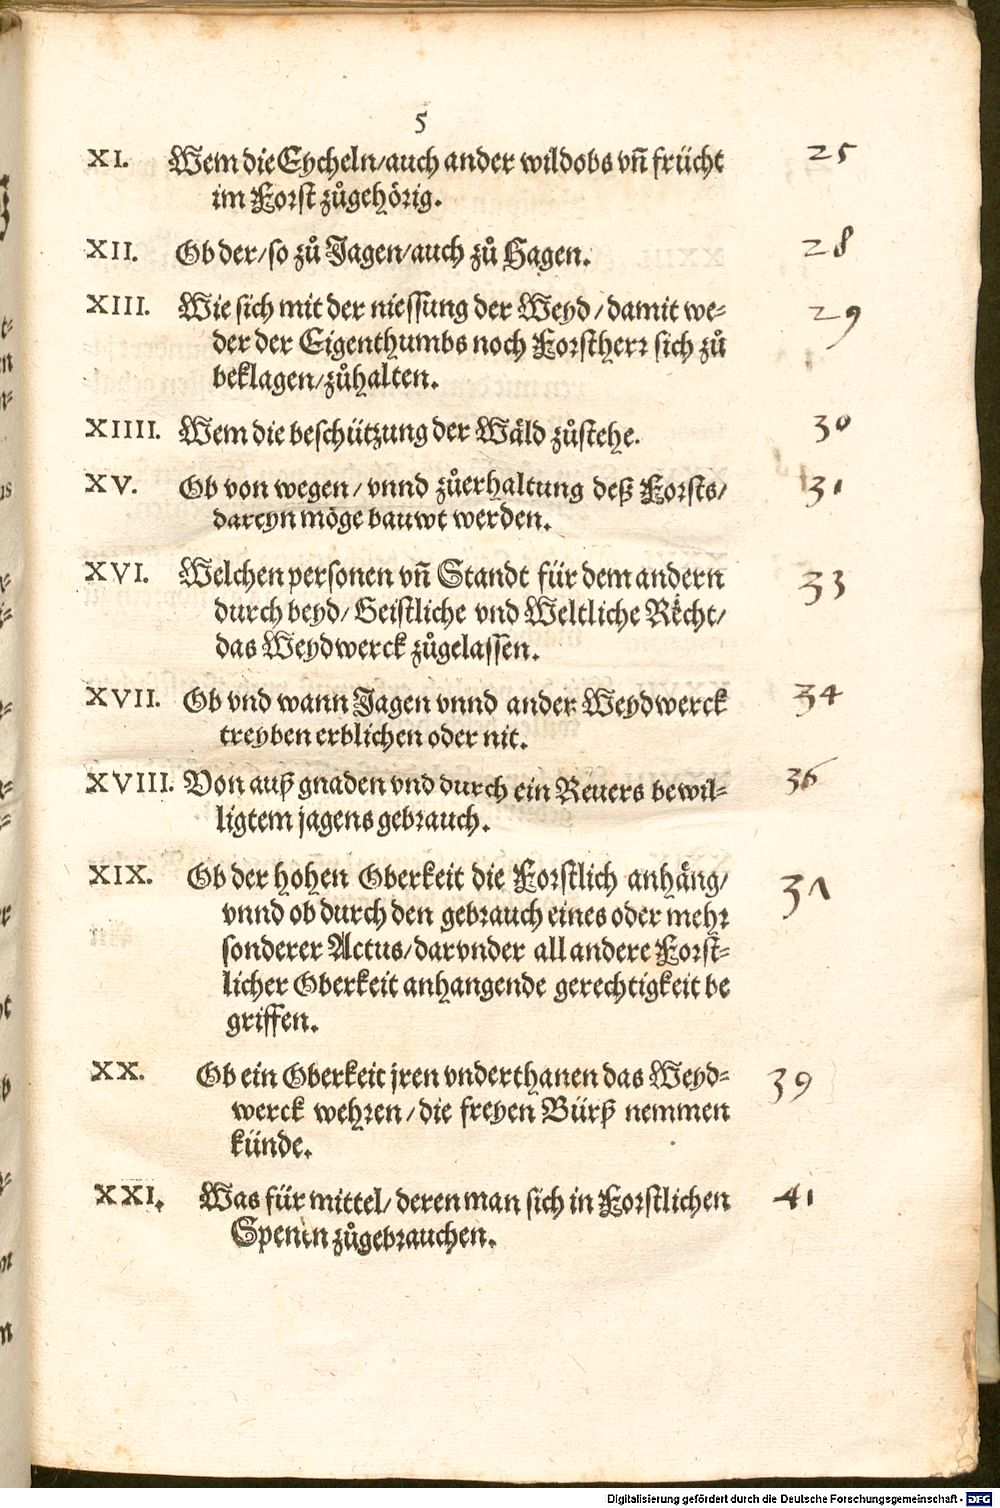 5
XI. Wem die Eycheln/auch ander wildobs vñ frücht 25
im Forst zůgehörig.
XII. Ob der/so zů Jagen/auch zů Hagen. 28
XIII. Wie sich mit der niessung der Weyd/damit we= 29
der der Eigenthumbs noch Forstherr sich zů
beklagen/zůhalten.
XIIII. Wem die beschützung der Wäld zůstehe. 30
XV. Ob von wegen/vnnd zůerhaltung deß Forsts/ 31
dareyn möge bauwt werden.
XVI. Welchen personen vñ Standt für dem andern 33
durch beyd/Geistliche vnd Weltliche Recht/
das Weydwerck zůgelassen.
XVII. Ob vnd wann Jagen vnnd ander Weydwerck 34
treyben erblichen oder nit.
XVIII. Von auß gnaden vnd durch ein Reuers bewil= 36
ligtem jagens gebrauch.
XIX. Ob der hohen Oberkeit die Forstlich anhäng/ 37
vnnd ob durch den gebrauch eines oder mehr
sonderer Actus/darvnder all andere Forst=
licher Oberkeit anhangende gerechtigkeit be
griffen.
XX. Ob ein Oberkeit jren vnderthanen das Weyd= 39
werck wehren/die freyen Bürß nemmen
künde.
XXI. Was für mittel/deren man sich in Forstlichen 41
Spenen zůgebrauchen.
Digitalisierung gefördert durch die Deutsche Forschungsgemeinschaft - DFG